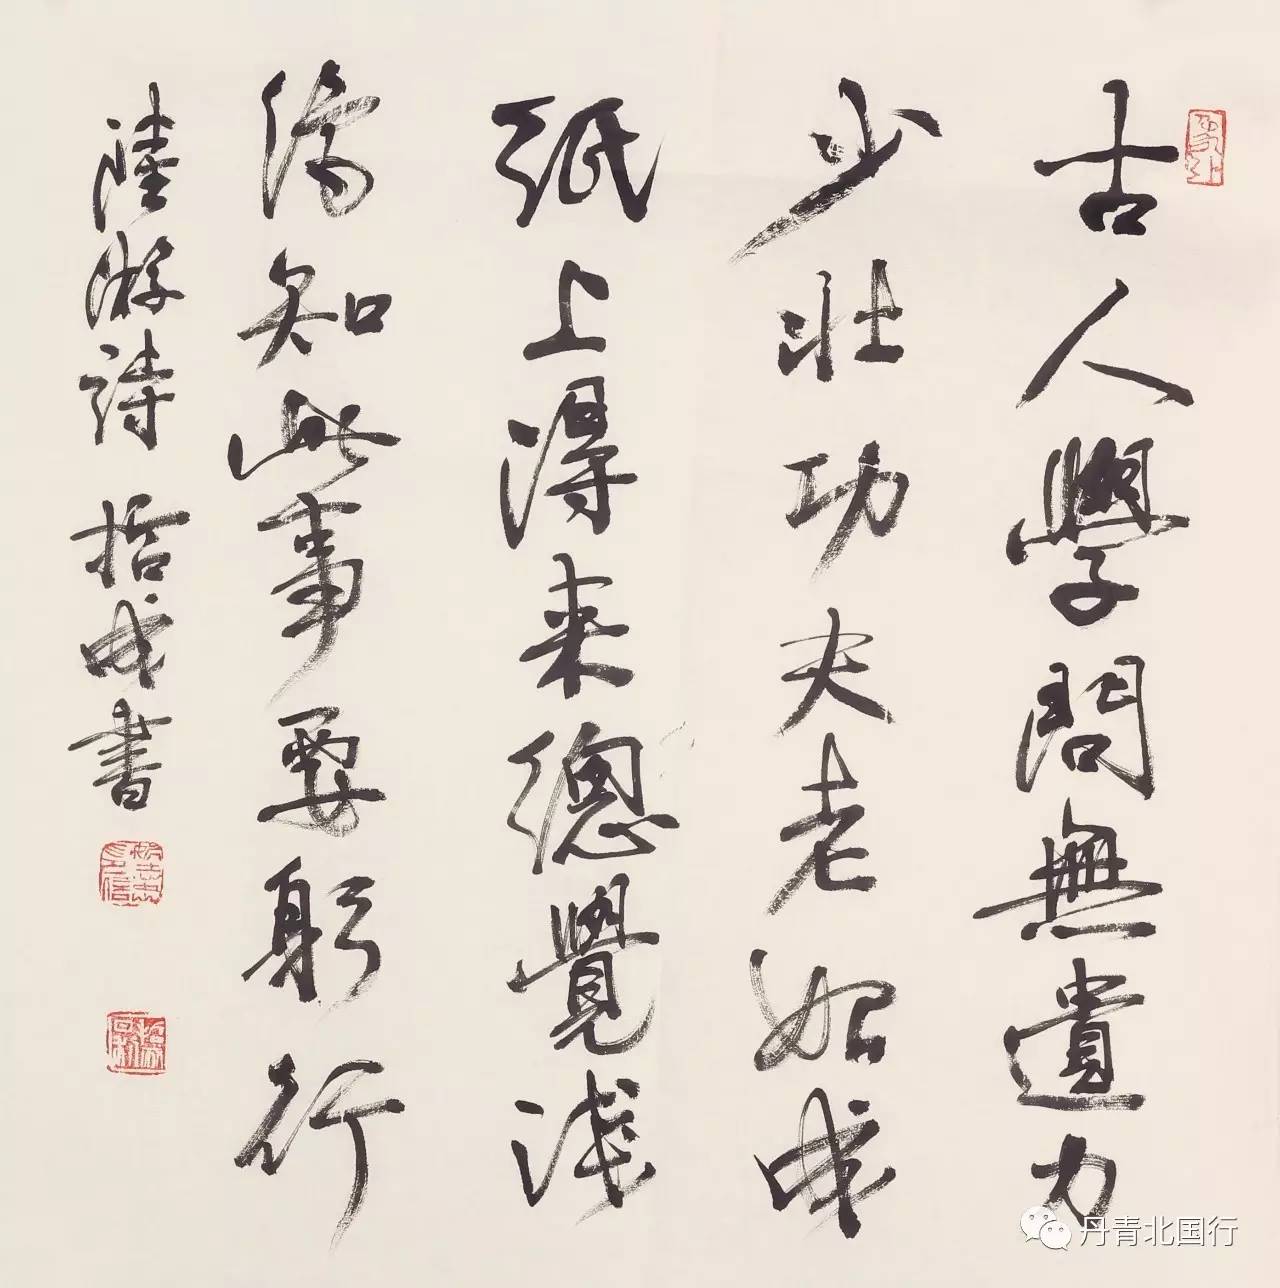 古人學問無遺力
少壮功夫老始成
紙上得来總覺浅
絕知此事要躬行
陸游詩 括成書
丹青北国行